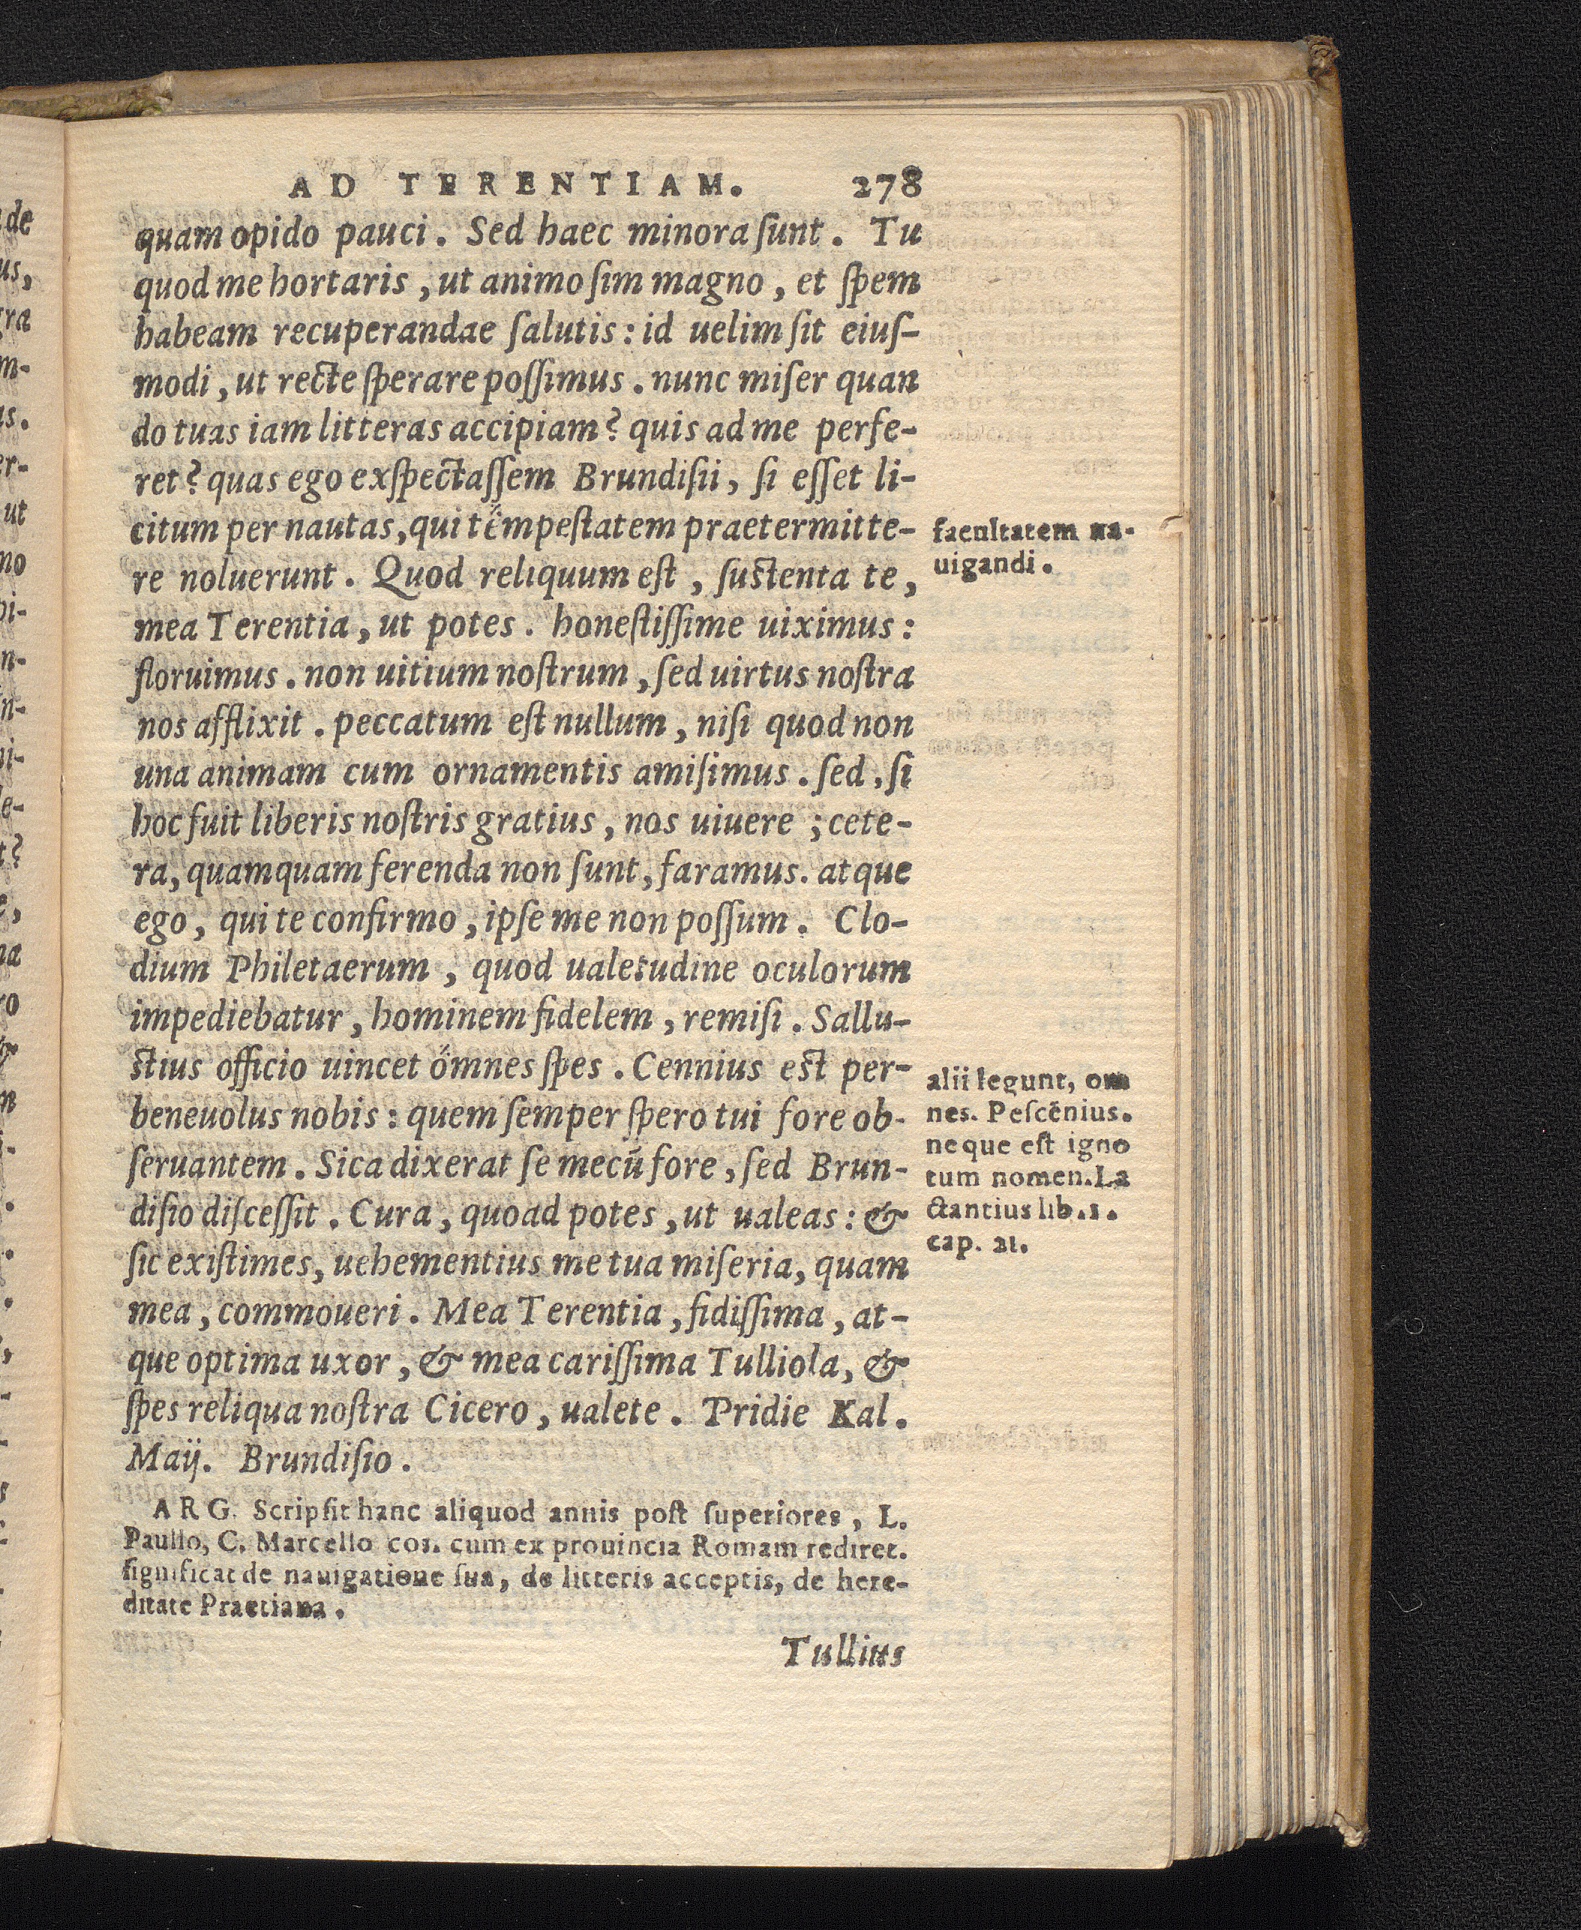 AD TERENTIAM. 278
quam opido pauci. Sed haec minora ſunt. Tu
quod me hortaris, ut animo ſim magno, et ſpem
habeam recuperandae ſalutis: id uelim ſit eiuſ-
modi, ut recte ſperare poſſimus. nunc miſer quan
do tuas iam litteras accipiam? quis ad me perfe-
ret? quas ego exſpectaſſem Brundiſii, ſi eſſet li-
citum per nautas, qui tempeſtatem praetermitte-
re noluerunt. Quod reliquum eſt, ſuſtenta te,
mea Terentia, ut potes. honeſtiſſime uiximus:
floruimus. non uitium noſtrum, ſed uirtus noſtra
nos afflixit. peccatum eſt nullum, niſi quod non
una animam cum ornamentis amiſimus. ſed, ſi
hoc fuit liberis noſtris gratius, nos uiuere; cete-
ra, quamquam ferenda non ſunt, faramus. atque
ego, qui te confirmo, ipſe me non poſſum. Clo-
dium Philetaerum, quod ualetudine oculorum
impediebatur, hominem fidelem, remiſi. Sallu-
ſtius officio uincet omnes ſpes. Cennius eſt per-
beneuolus nobis: quem ſemper ſpero tui fore ob-
ſeruantem. Sica dixerat ſe mecū fore, ſed Brun-
diſio diſceſſit. Cura, quoad potes, ut ualeas: &
ſic exiſtimes, uehementius me tua miſeria, quam
mea, commoueri. Mea Terentia, fidiſſima, at-
que optima uxor, & mea cariſſima Tulliola, &
ſpes reliqua noſtra Cicero, ualete. Pridie Kal.
Maij. Brundiſio.
ARG. Scripſit hanc aliquod annis poſt ſuperiores, L.
Paullo, C. Marcello coſ. cum ex prouincia Romam rediret.
ſignificat de nauigatione ſua, de litteris acceptis, de here-
ditate Praetiana.
Tullius
facultatem na-
uigandi.
alii legunt, om
nes. Peſcēnius.
neque eſt igno
tum nomen. La
ctantius lib. 1.
cap. 21.